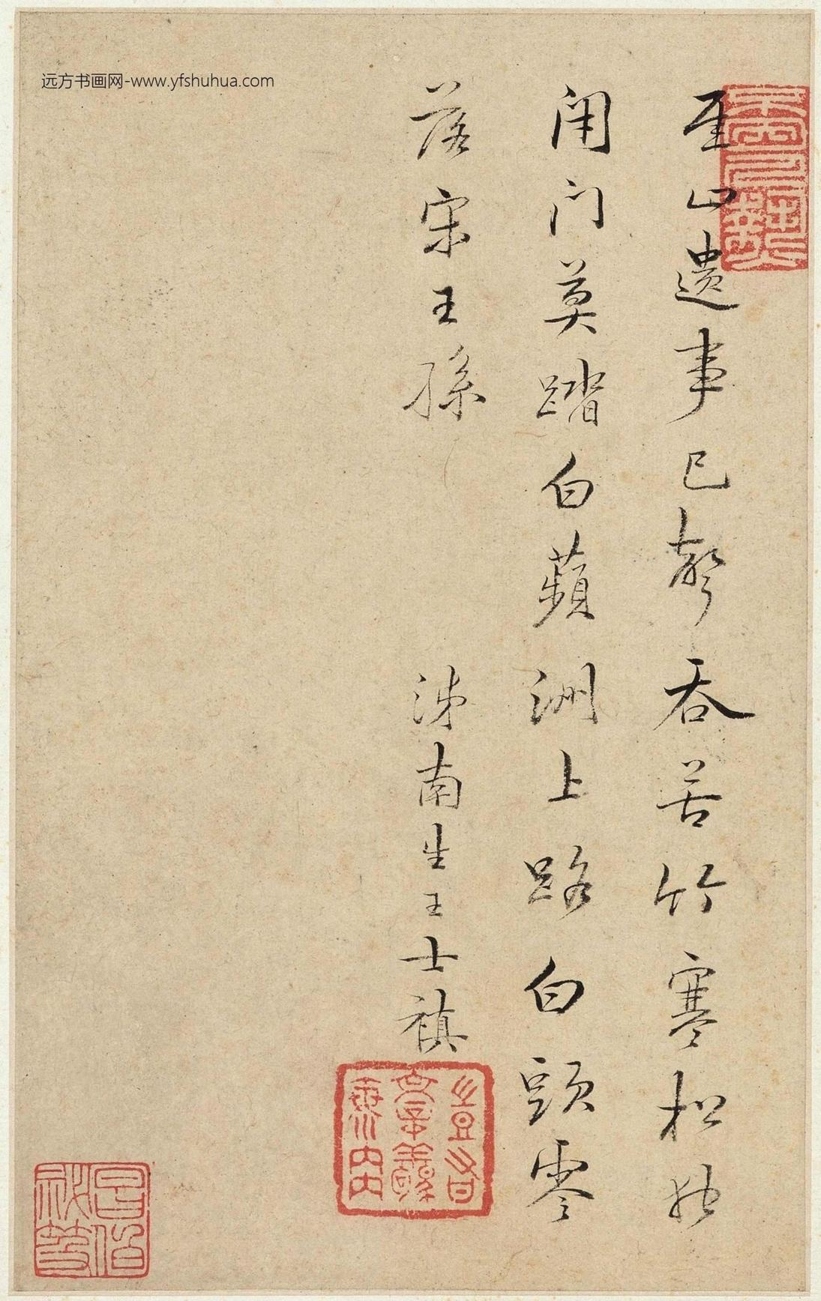 远方书画网-www.yfshuhua.com
厓山遺事已聲吞苦竹寒松
閉門莫踏白蘋洲上路白頭零
落宋王孫
泲南生王士禛